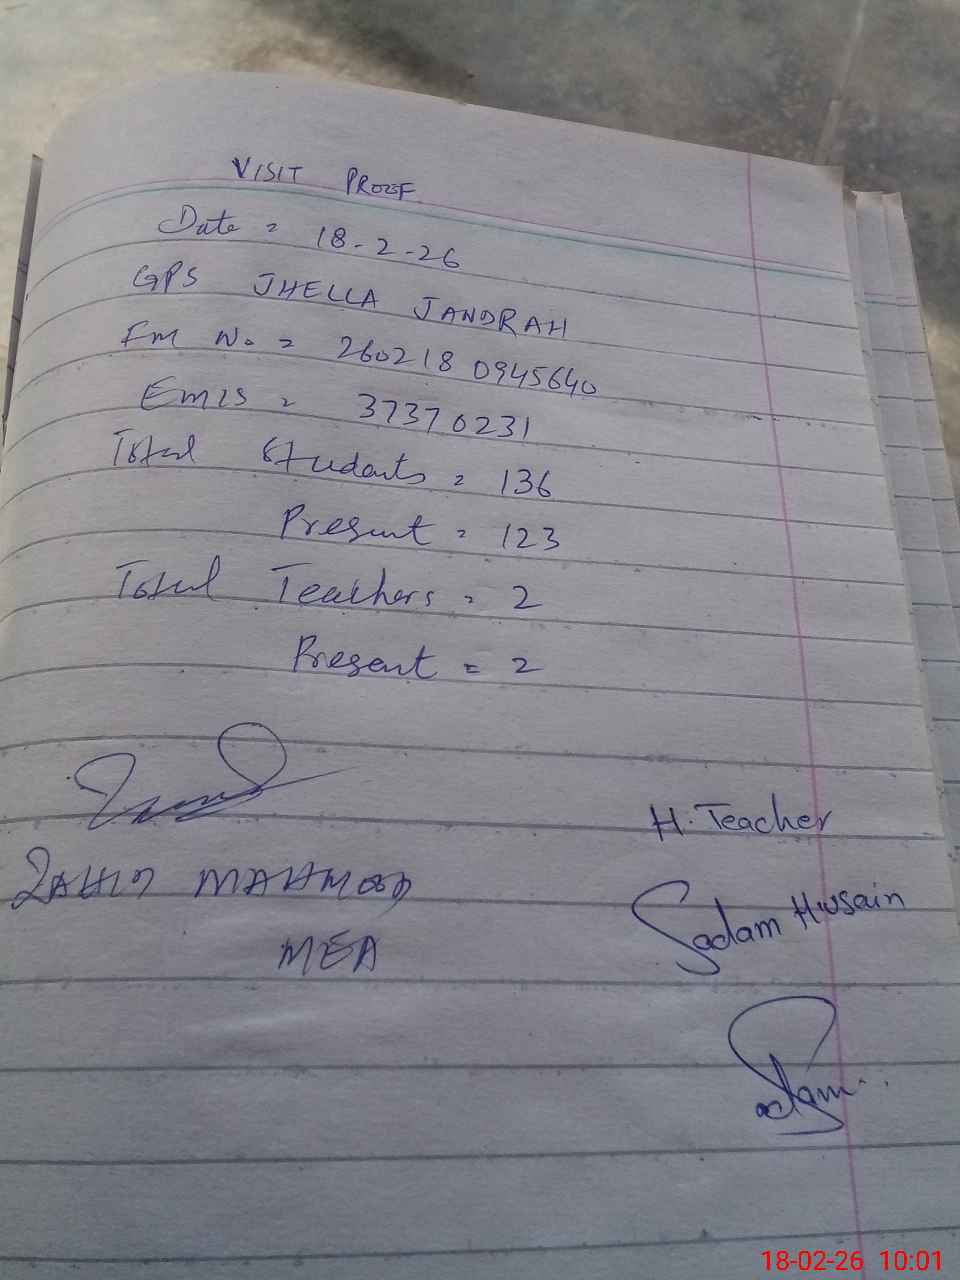 VISIT PROOF
Date = 18-2-26
GPS JHELLA JANDRAH
Fm No = 260218 0945640
Emis = 37370231
Total Students = 136
Present = 123
Total Teachers = 2
Present = 2
H. Teacher
MAHMOOD
Sadam Hussain
MEA
18-02-26 10:01